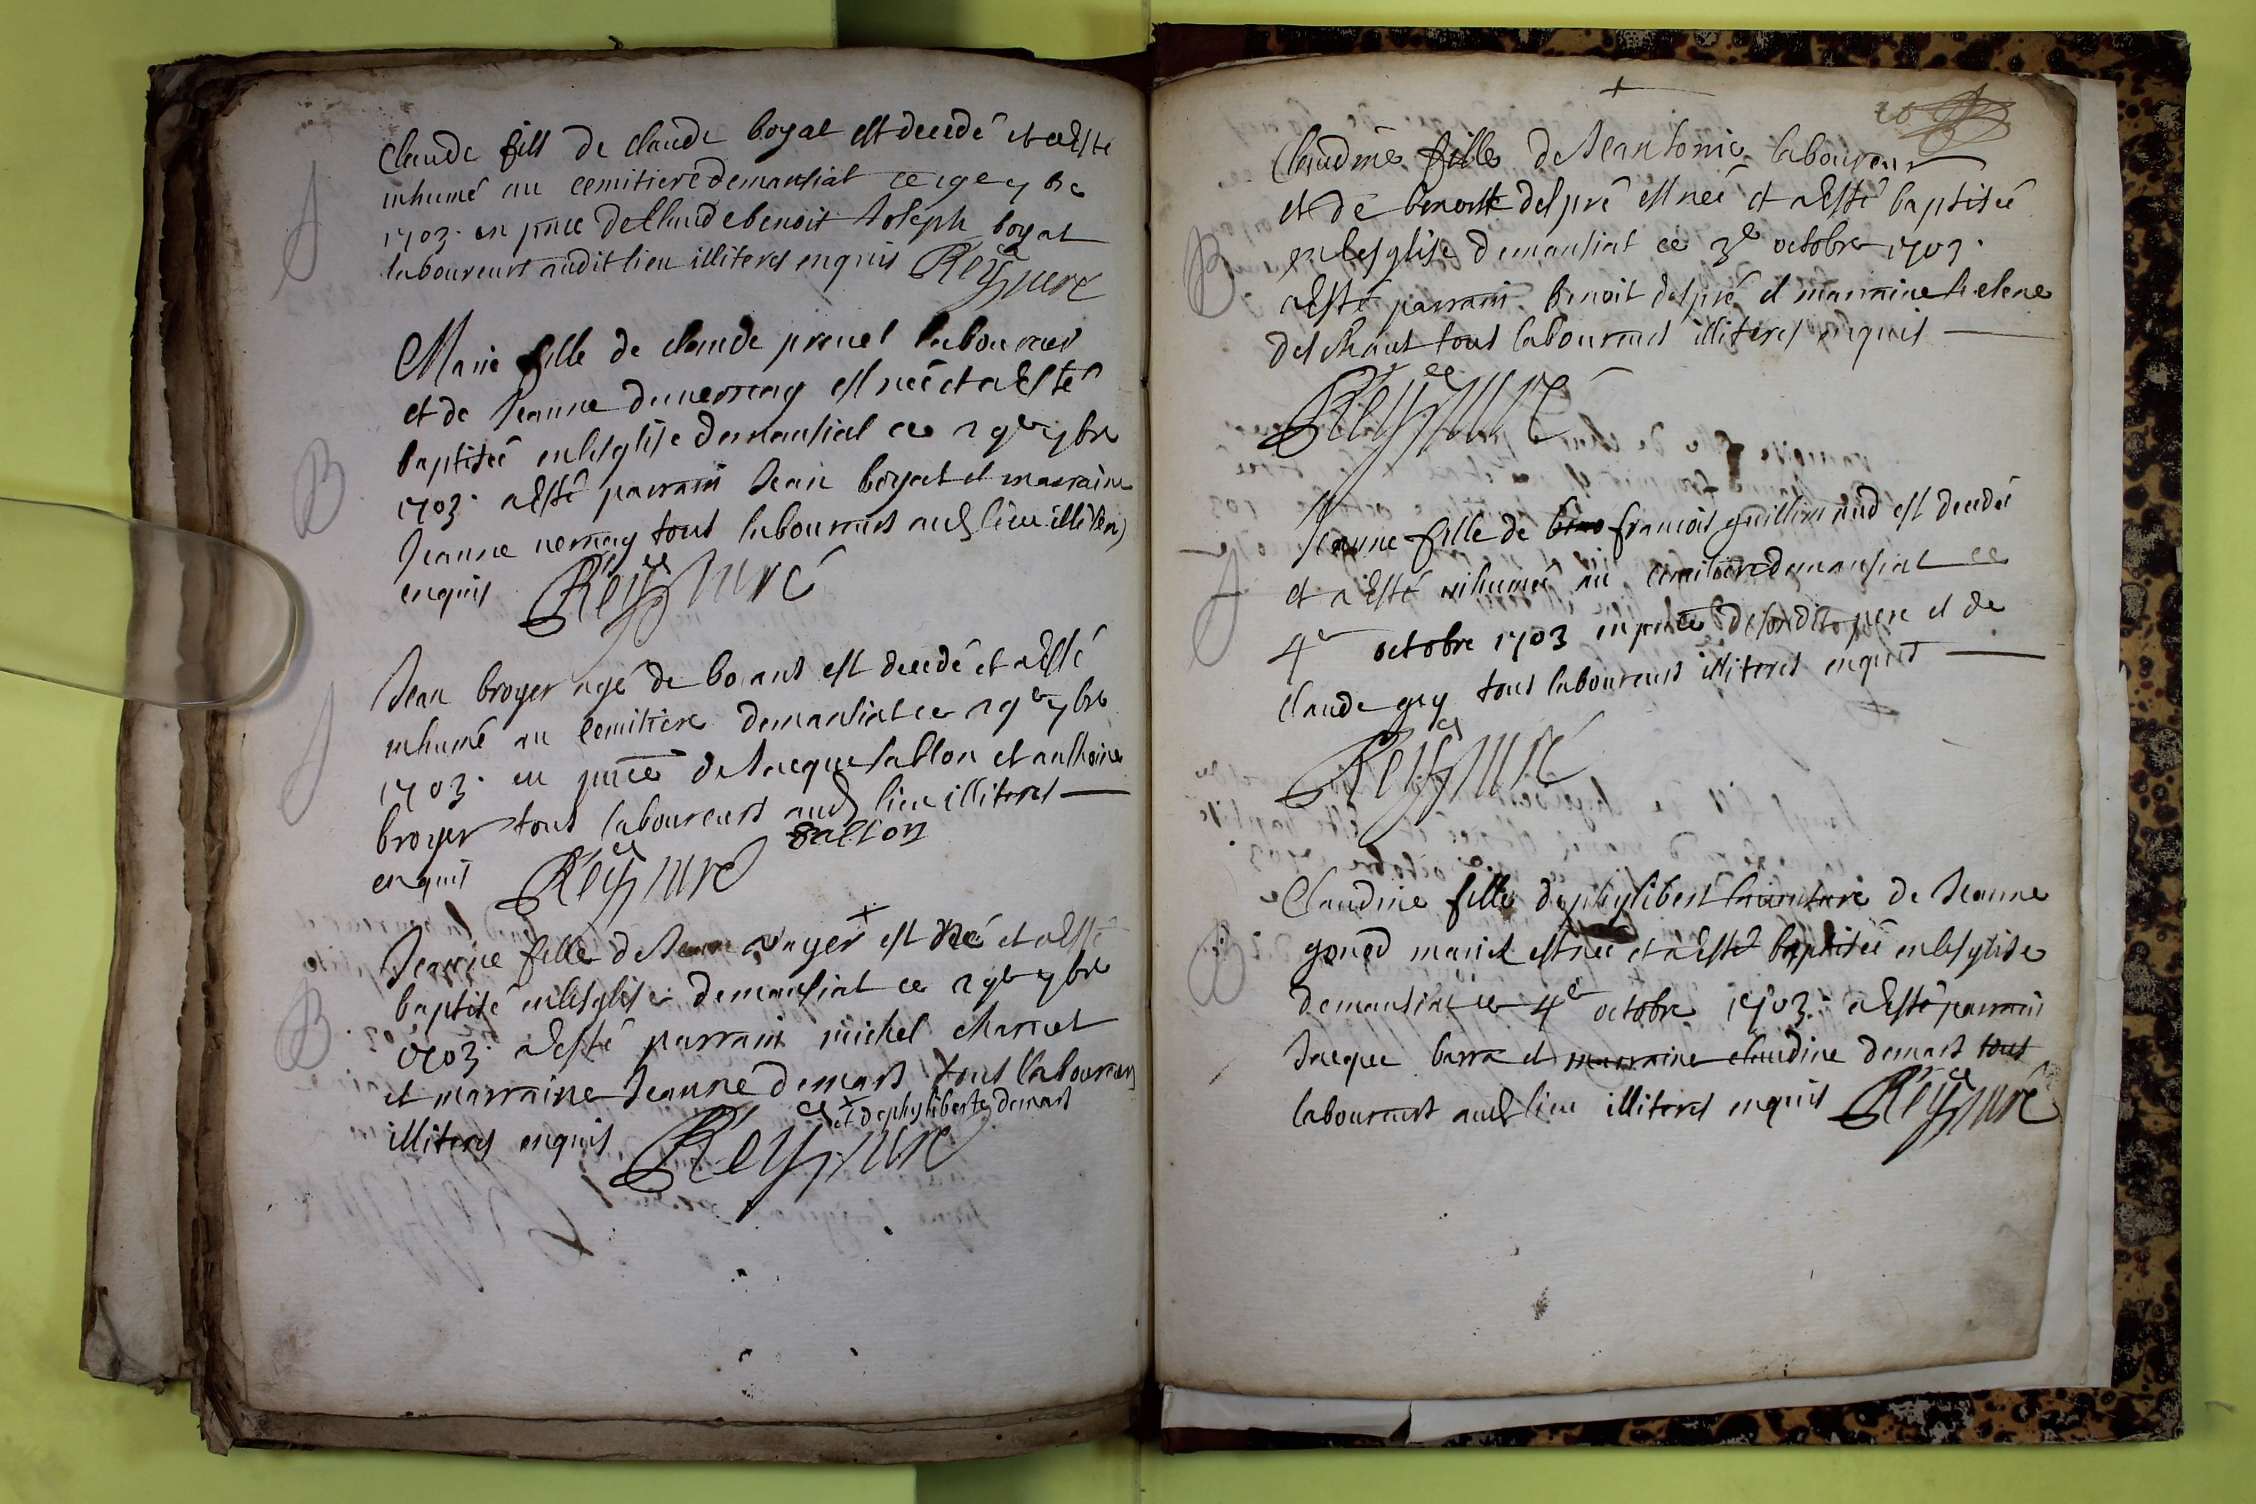 Claude fils de claude boyat est decedé et a Esté
inhumé au cemitiere demansiat ce 19e 7bre
1703. en pnce de Claude benoit Joseph boyat
laboureurs audit lieu illiteres enquis Rey curé
Marie fille de claude previel laboureur
et de Jeanne duvernay est née et a Esté
baptisée en lesglise demansiat ce 29e 7bre
1703. a Esté parrain Jean boyat et marraine
Jeanne vernay tous laboureurs aud lieu illiteres
enquis Rey curé
Jean broyer agé de 60 ans est decedé et a Esté
inhumé au Cemitiere demansiat ce 29e 7bre
1703. en pnce de Jacque sallon et anthoine
broyer tous laboureurs aud lieu illiteres
enquis Rey curé sallon
Jeanne fille de Jean voyer + est née et a Esté
baptisé en lesglise demansiat ce 29e 7bre
1703. a Esté parrain michel charvet
et marraine Jeanne demars tous laboureurs
+ et de phyliberte demars
illiteres enquis Rey curé
20
Claudine fille de Jean tonie laboureur
et de benoite despré est née et a Esté baptisée
en lesglise demansiat ce 3e octobre 1703.
a Esté parrain benoit despré et marraine helene
deschaux tous laboureurs illiteres enquis
Rey curé
Jeanne fille de francois guillimaud est decedée
et a Esté inhumée au cemitiere demansiat ce
4e octobre 1703 en pnce desondit pere et de
Claude guy tous laboureurs illiteres enquis
Rey curé
Claudine fille de phylibert de Jeanne
goned mariés est née et a Esté baptisée en lesglise
demansiat ce 4e octobre 1703. a Esté parrain
Jacque barra et marraine claudine demars tous
laboureurs aud lieu illiteres enquis Rey curé